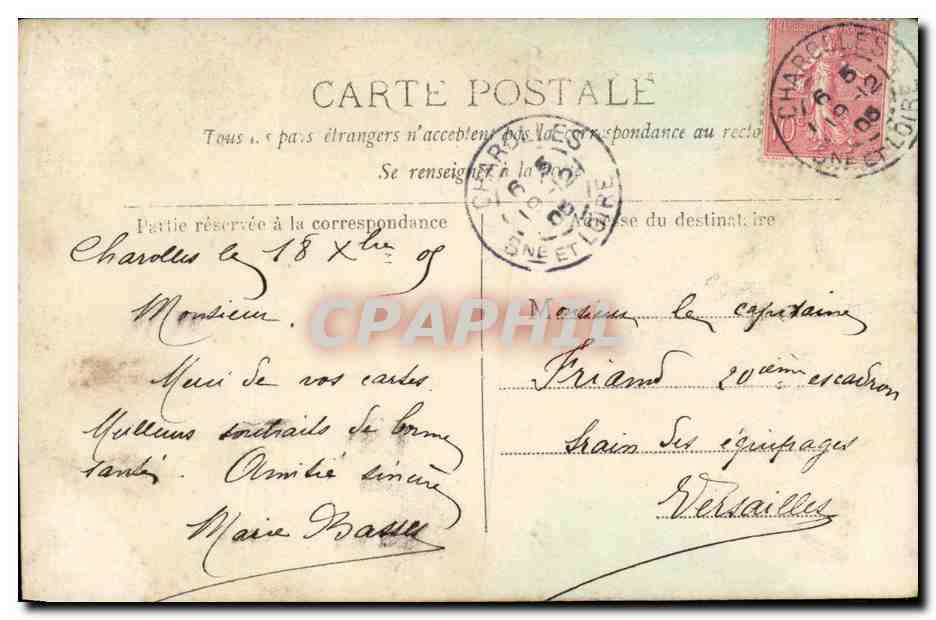 CARTE POSTALE
Tous les pays étrangers n'acceptent pas la correspondance au recto
Se renseigner à la
Partie réservée à la correspondance
Adresse du destinataire
CHAROLLES
SNE ET LOIRE
CHAROLLES
SNE ET LOIRE
Charolles le 18 Xbre 05
Monsieur.
Merci de vos cartes.
Meilleurs souhaits de bonne
santé. Amitié sincère
Marie Basset
Monsieur le capitaine
Friand 20ième escadron
train des équipages
Versailles
CPAPHIL